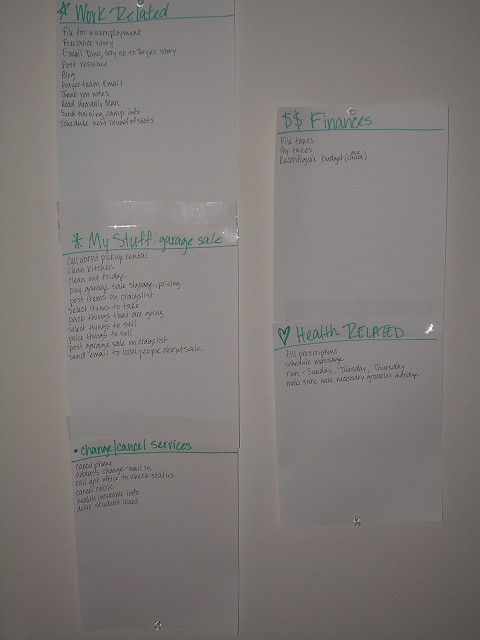 Work Related
File for unemployment
Freelance story
Email Dino, say no to Reyes story
Post resume
Blog
Prayer team Email
Thank you notes
Read Heavenly Man
Send training camp info
Schedule next round of shots
My Stuff: garage sale
Call about pickup rental
Clean kitchen
Clean out fridge
Buy garage sale signage, pricing
post items on craigslist
select items to take
pack things that are going
select things to sell
price things to sell
post garage sale on craigslist
send email to local people about sale
change/cancel services
cancel phone
address change-mail in
call apt office to check status
cancel cable
health insurance info
defer student loans
$$ Finances
File taxes
Pay taxes
Reconfigure budget
Health RELATED
fill prescriptions
schedule massage
run - Sunday, Tuesday, Thursday
make sure have necessary groceries in fridge